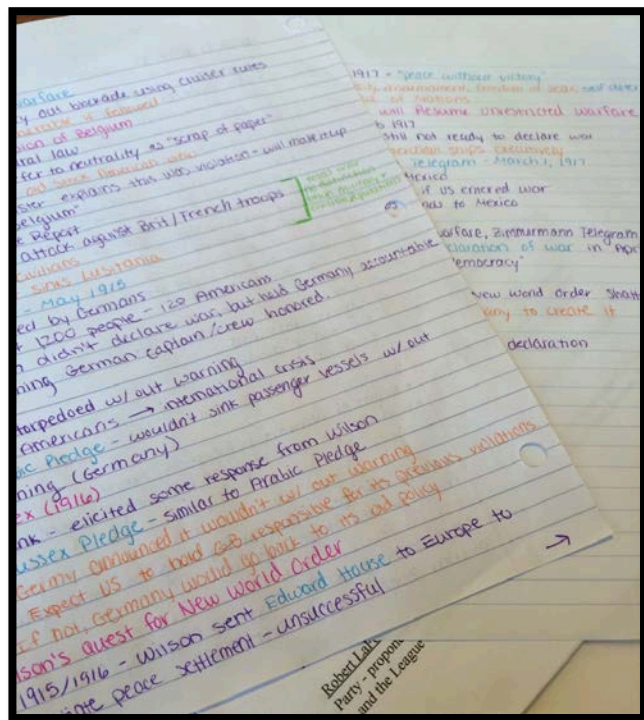 warfare
out blockade using cruiser rules
is followed
sion of Belgium
ral law
fer to neutrality as "scrap of paper"
ster explains this was violation - will make it up
elgium"
e Report
attack against Brit/French troops
civilians
sinks Lusitania
- May 1915
ed by Germans
1200 people - 120 Americans
n didn't declare war, but held Germany accountable
ning German captain/crew honored.
torpedoed w/out warning
Americans → international crisis
ic Pledge - wouldn't sink passenger vessels w/out
ning (Germany)
ex (1916)
nk - elicited some response from Wilson
ussex Pledge - similar to Arabic Pledge
Germany announced it wouldn't w/out warning
Expect US to hold GB responsible for its previous violations
If not, Germany would go back to its old policy
lson's quest for New World Order
1915/1916 - Wilson sent Edward House to Europe to
peace settlement - unsuccessful
→
1917 - "peace without victory"
of Nations
will resume unrestricted warfare
1917
still not ready to declare war
ships
Telegram - March 1, 1917
Mexico
if US entered war
to Mexico
warfare, Zimmermann Telegram
claration of war in Apr
emocracy"
New World Order shatt
any to create it
declaration
Robert LaF
Party - propon
and the League